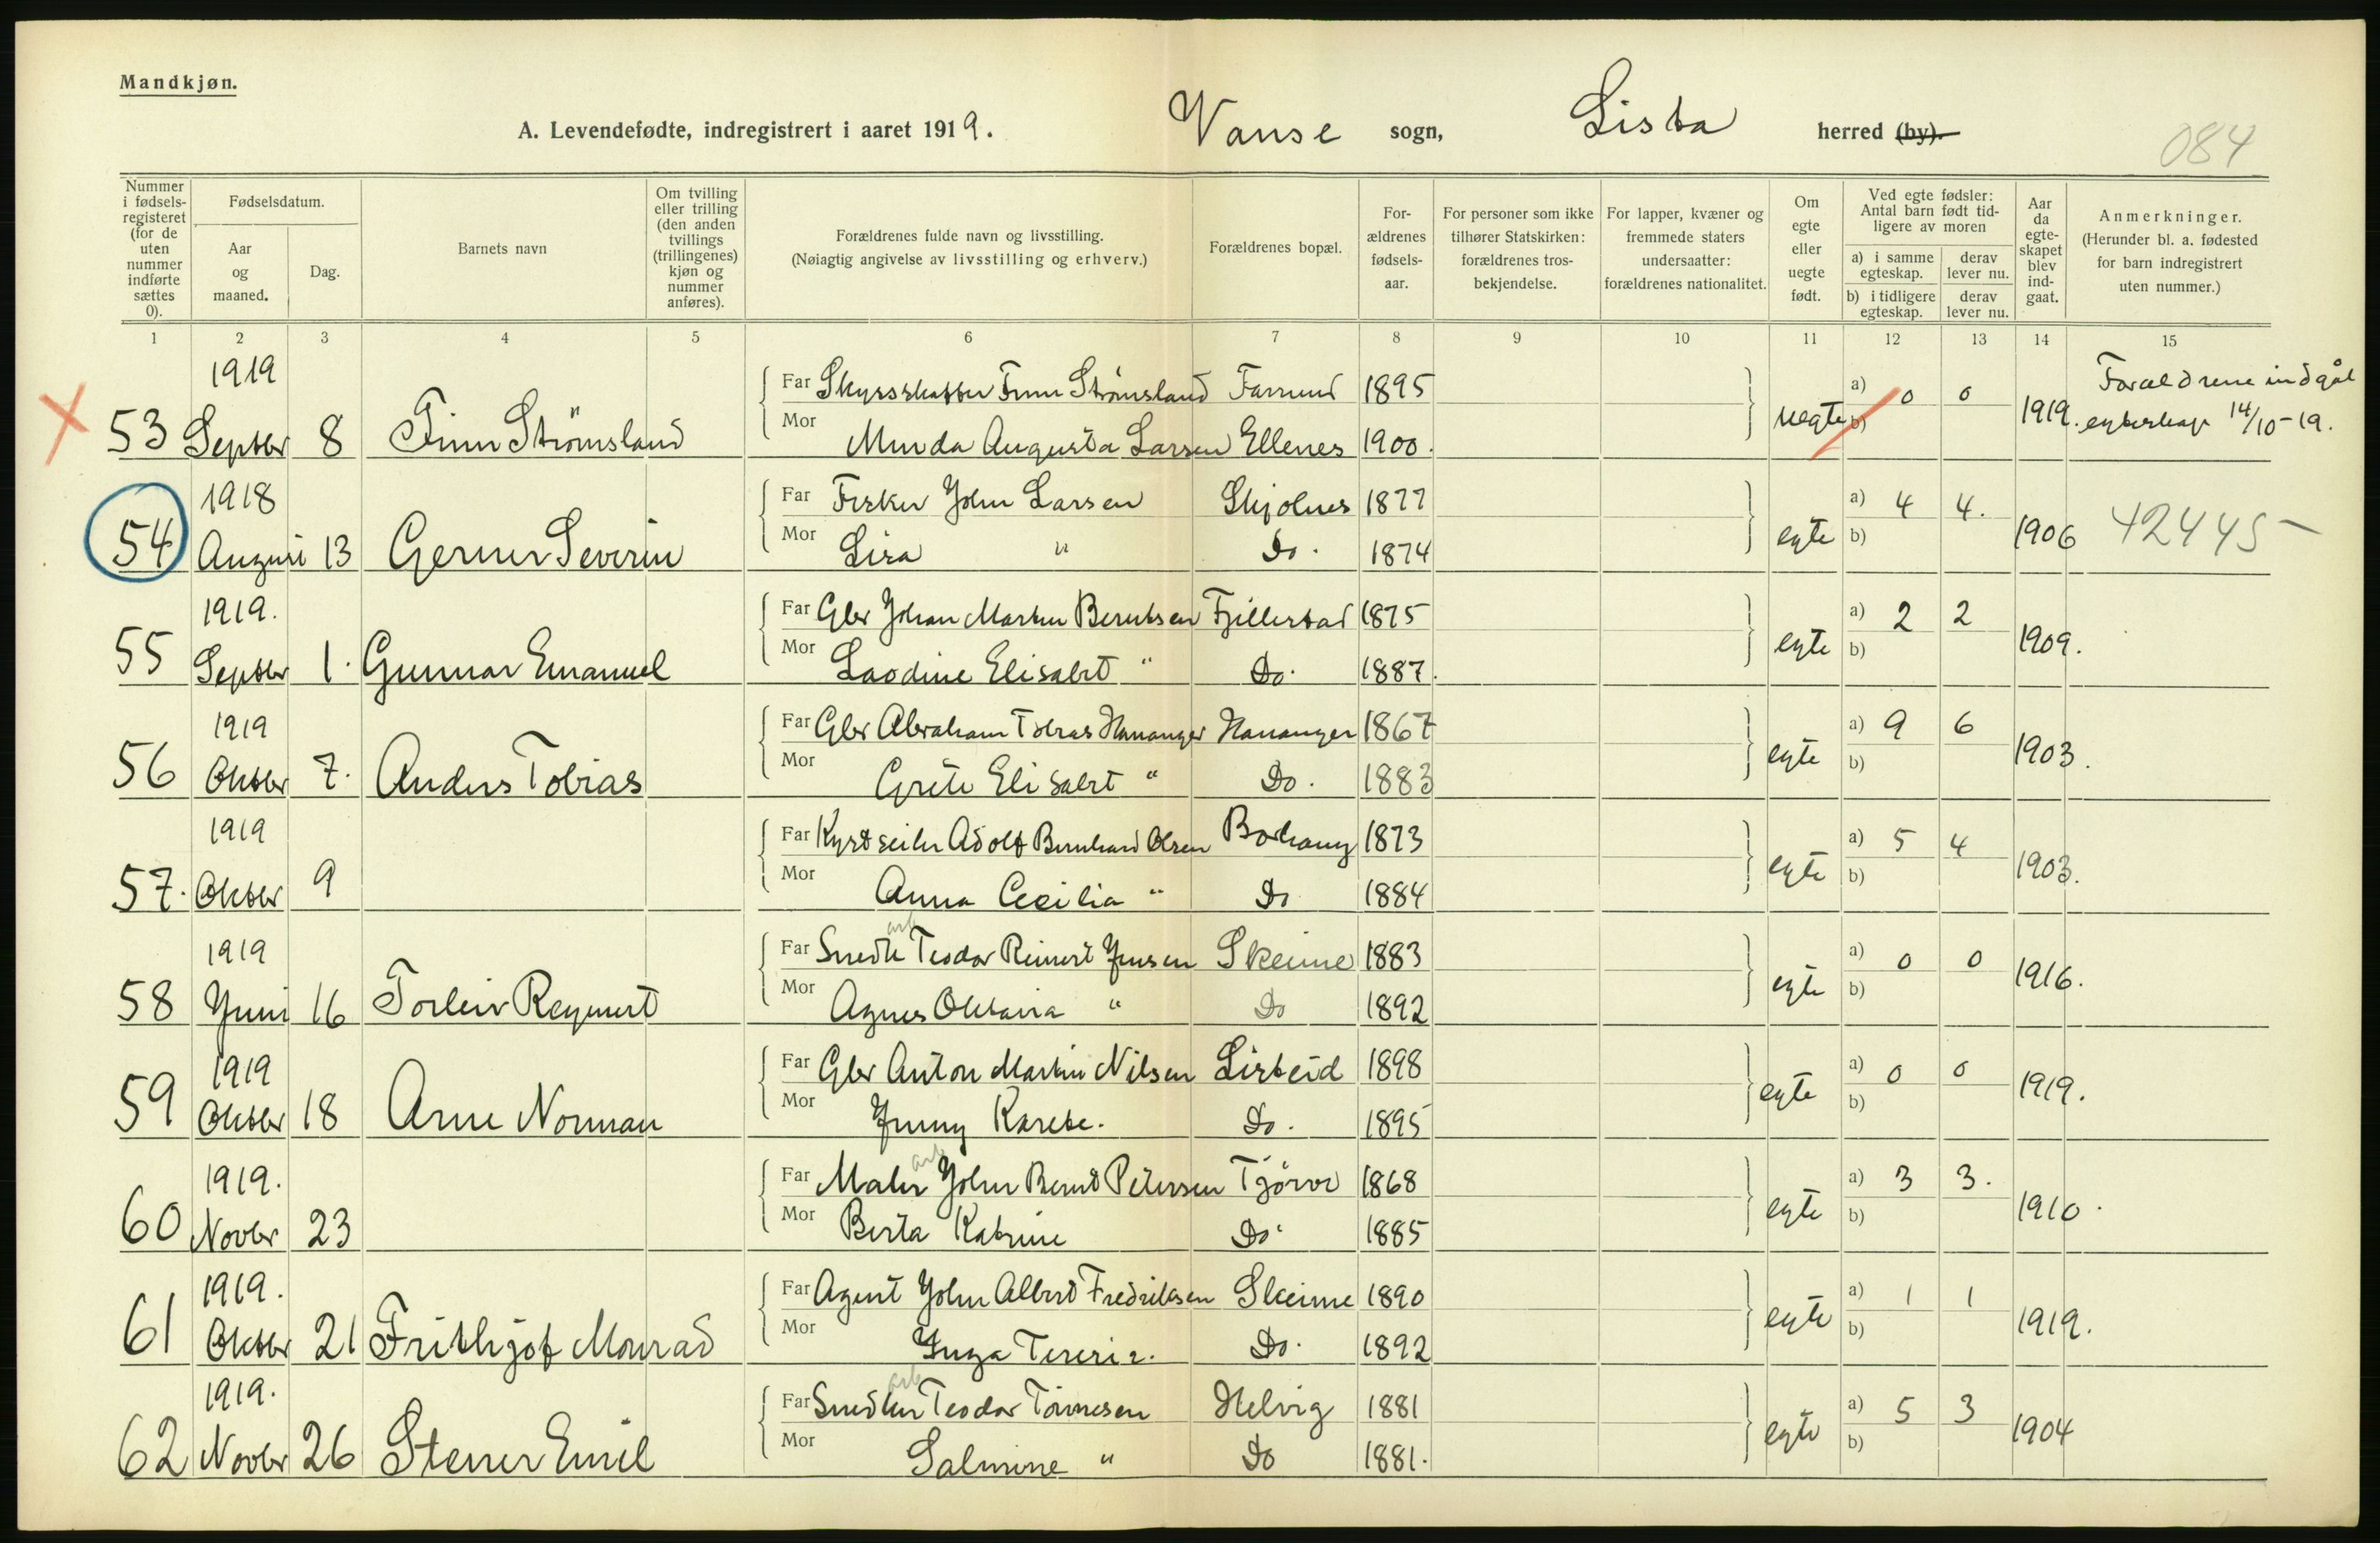 Mandkjøn.
A. Levendefødte, indregistrert i aaret 1919. Vanse sogn, Lista herred (by).
084
Nummer i fødsels-registeret (for de uten nummer indførte sættes 0).
Fødselsdatum.
Aar og maaned.
Dag.
Barnets navn
Om tvilling eller trilling (den anden tvillings (trillingenes) kjøn og nummer anføres).
Forældrenes fulde navn og livsstilling.
(Nøiagtig angivelse av livsstilling og erhverv.)
Forældrenes bopæl.
For-ældrenes fødsels-aar.
For personer som ikke tilhører Statskirken: forældrenes tros-bekjendelse.
For lapper, kvæner og fremmede staters undersaatter: forældrenes nationalitet.
Om egte eller uegte født.
Ved egte fødsler: Antal barn født tid-ligere av moren
a) i samme egteskap.
derav lever nu.
b) i tidligere egteskap.
derav lever nu.
Aar da egte-skapet blev ind-gaat.
Anmerkninger.
(Herunder bl. a. fødested for barn indregistrert uten nummer.)
1 2 3 4 5 6 7 8 9 10 11 12 13 14 15
1919 Far Skyssskaffer Finn Strømsland Farsund 1895 a) 0 0 Forældrene indgåt
53 Septbr 8 Finn Strømsland Mor Minda Augusta Larsen Ellenes 1900. uegte b) 1919. egteskap 14/10-19.
1918 Far Fisker John Larsen Skjolnes 1877 a) 4 4.
54 August 13 Gerner Severin Mor Lisa " Do. 1874 egte b) 1906 42445-
1919. Far Gbr Johan Martin Berntsen Fjillestad 1875 a) 2 2
55 Septbr 1. Gunnar Emanuel Mor Laodine Elisabet " Do. 1887. egte b) 1909.
1919 Far Gbr Abraham Tobias Hananger Hananger 1867 a) 9 6
56 Oktbr 7. Anders Tobias Mor Grete Elisabet " Do. 1883 egte b) 1903.
1919 Far Kystseiler Adolf Bernhard Olsen Borhaug 1873 a) 5 4
57. Oktbr 9 Mor Anna Cecilia " Do 1884 egte b) 1903.
1919 Far Smed Teodor Reinert Jensen Skeime 1883 a) 0 0
58 Juni 16 Torleiv Reynert Mor Agnes Oktavia " Do 1892 egte b) 1916.
1919 Far Gbr Anton Martin Nilsen Listeid 1898 a) 0 0
59 Oktbr 18 Arne Norman Mor Jenny Karete. Do. 1895 egte b) 1919.
1919. Far Maler John Bernt Petersen Tjörve 1868 a) 3 3.
60 Novbr 23 Mor Berta Katrine Do. 1885 egte b) 1910.
1919. Far Agent John Albert Fredriksen Skeime 1890 a) 1 1
61 Oktbr 21 Frithjof Monrad Mor Inga Teresia. Do. 1892 egte b) 1919.
1919. Far Snedker Teodor Tönnesen Helvig 1881 a) 5 3
62 Novbr 26 Stener Emil Mor Salmine " Do 1881. egte b) 1904